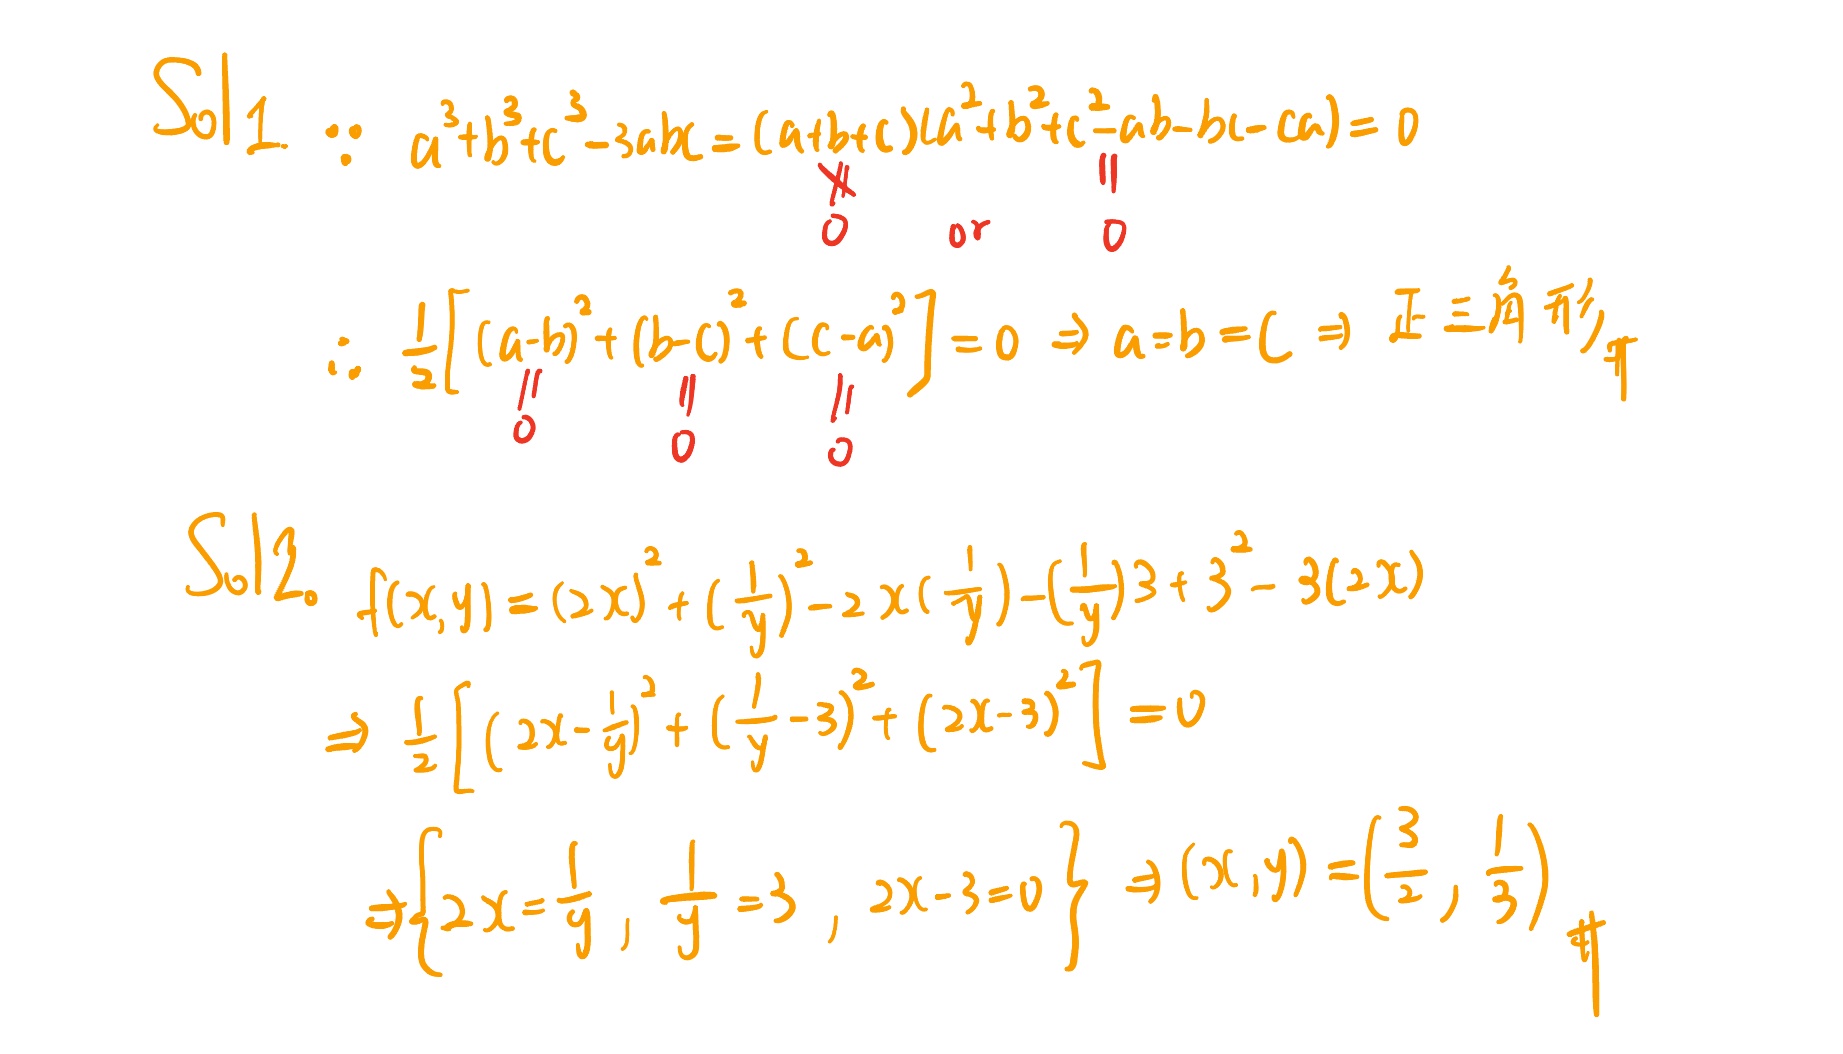 Sol1. ∵ a³+b³+c³-3abc=(a+b+c)(a²+b²+c²-ab-bc-ca)=0
≠0 or =0
∴ 1/2[(a-b)²+(b-c)²+(c-a)²]=0 ⇒ a=b=c ⇒ 正三角形
=0 =0 =0
Sol2. f(x,y)=(2x)²+(1/y)²-2x(1/y)-(1/y)3+3²-3(2x)
⇒ 1/2[(2x-1/y)²+(1/y-3)²+(2x-3)²]=0
⇒{2x=1/y, 1/y=3, 2x-3=0} ⇒(x,y)=(3/2, 1/3)